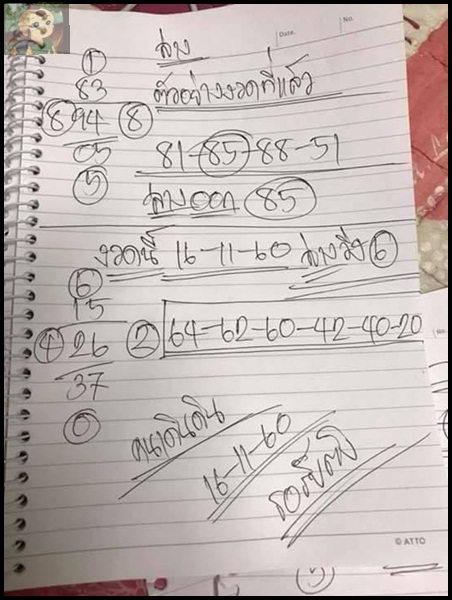 Date. No.
① ล่าง
83 ตัวอย่างงวดที่แล้ว
⑧ 94 ⑧
05 81-85-88-51
⑤ ล่างออก 85
งวดนี้ 16-11-60 ล่างวิ่ง ⑥
⑥
15
④ 26 ② 64-62-60-42-40-20
37
⓪
คนเดินดิน
16-11-60
© ATTO
No.
⑤